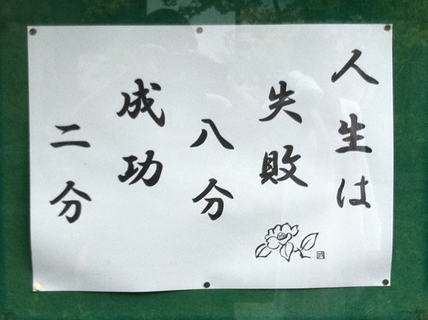 人生は
失敗
八分
成功
二分